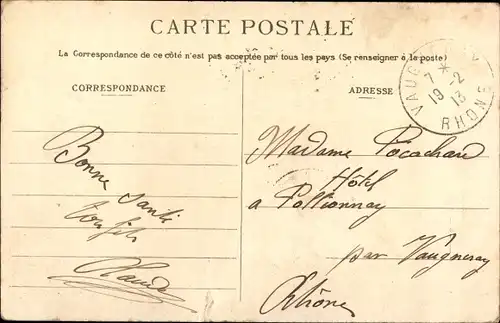 CARTE POSTALE
La Correspondance de ce côté n'est pas acceptée par tous les pays (Se renseigner à la poste)
CORRESPONDANCE
ADRESSE
7 *
19 -2
13
RHONE
Bonne
santé
Claude
Madame Pocachard
Hôtel
a Pollionnay
par Vaugneray
Rhône